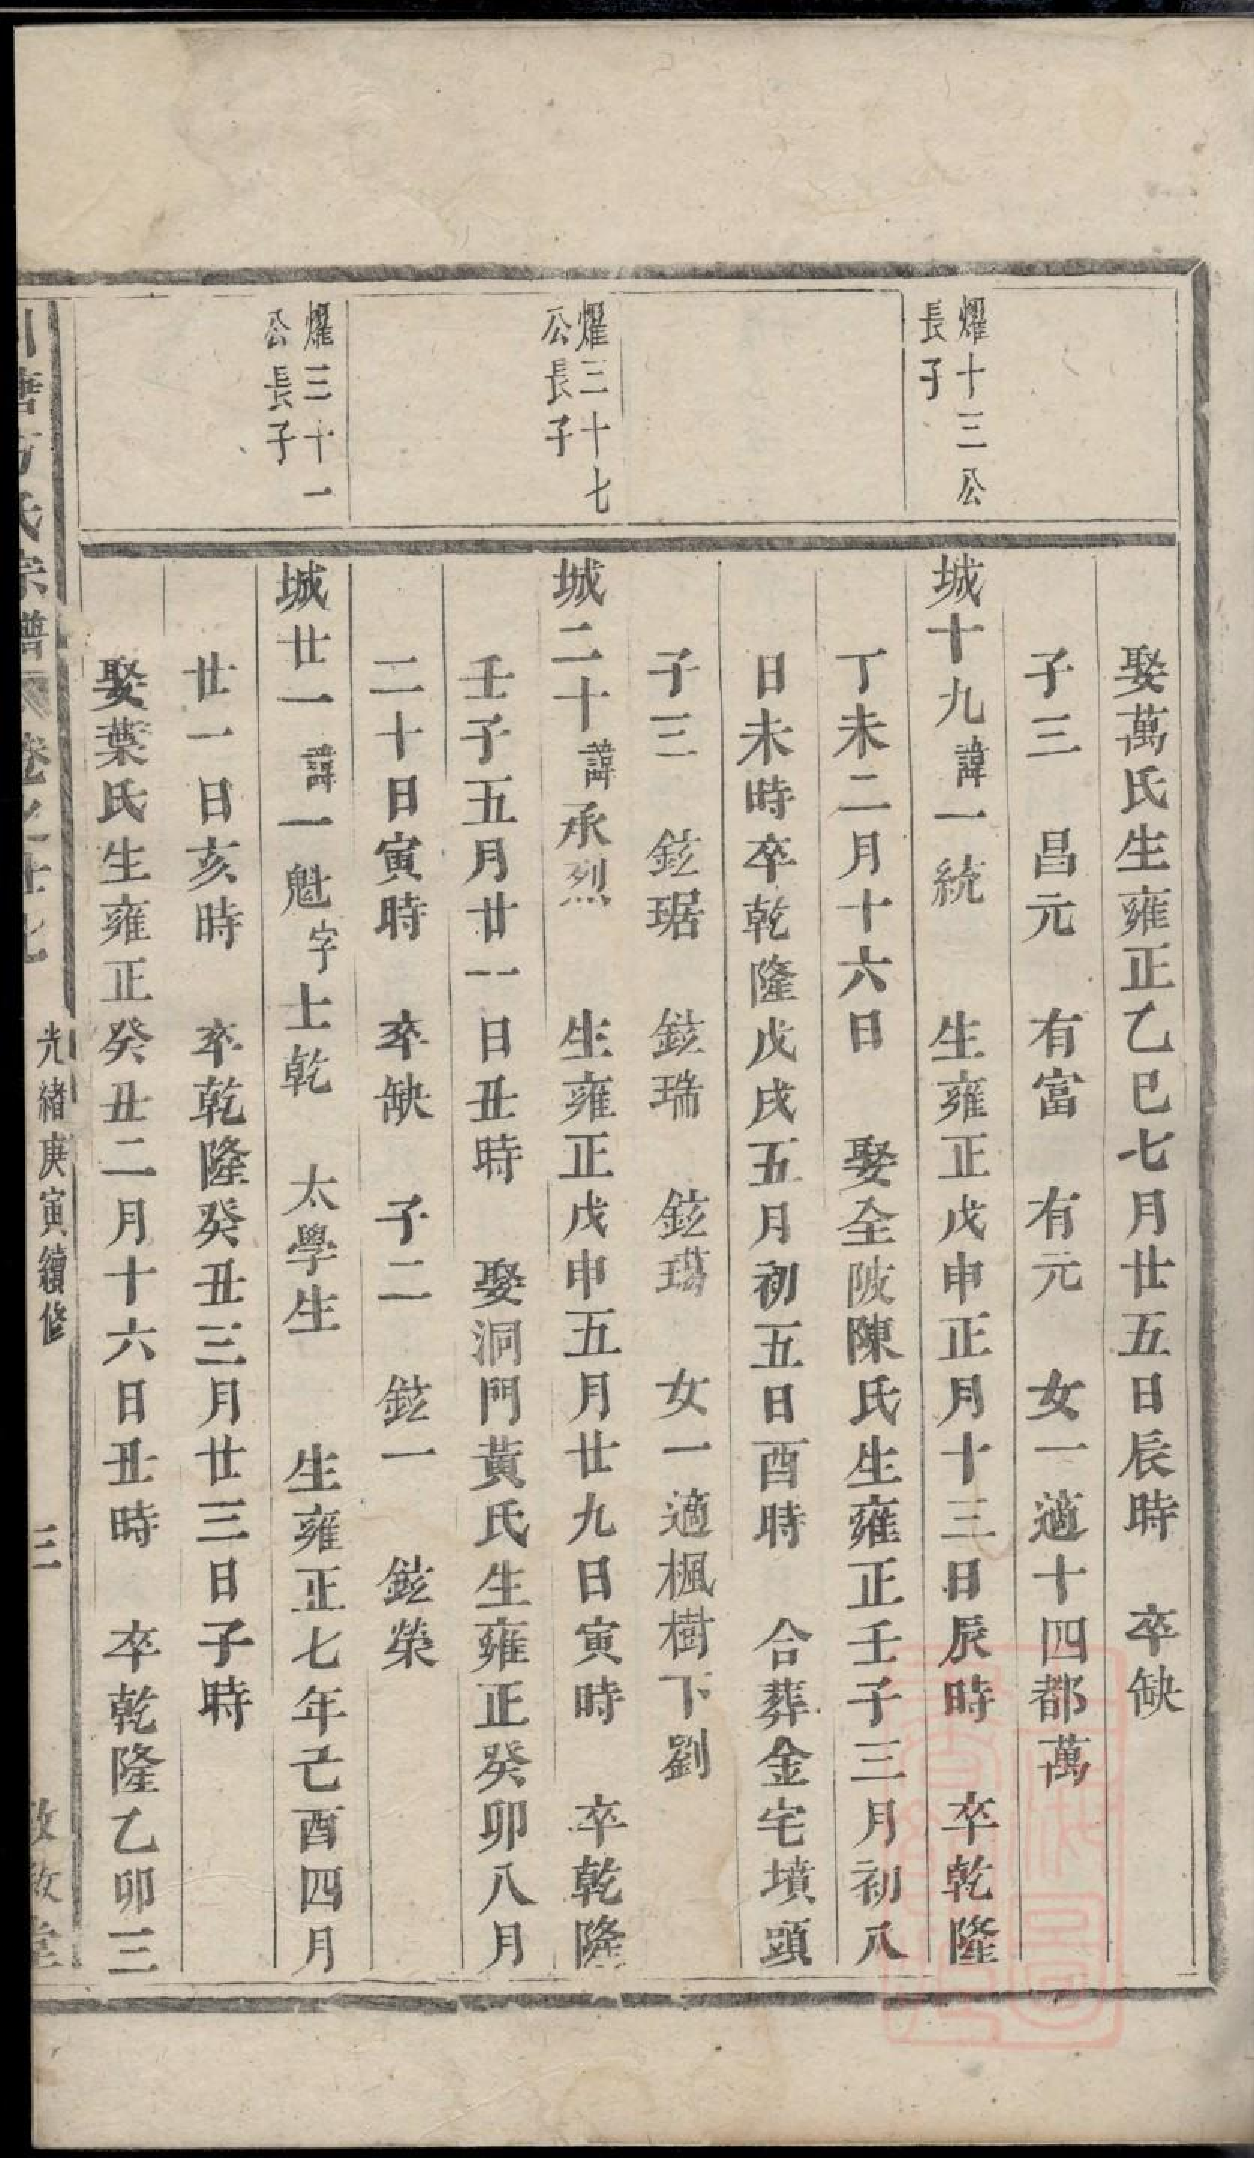 娶萬氏生雍正乙巳七月廿五日辰時　卒缺
子三　昌元　有富　有元　女一適十四都萬
燿十三公
長子
城十九諱一統　生雍正戊申正月十三日辰時　卒乾隆
丁未二月十六日　娶全陂陳氏生雍正壬子三月初八
日未時卒乾隆戊戌五月初五日酉時　合葬金宅墳頭
子三　鉉琚　鉉瑞　鉉瑒　女一適楓樹下劉
燿三十七
公長子
城二十諱承烈　生雍正戊申五月廿九日寅時　卒乾隆
壬子五月廿一日丑時　娶洞門黃氏生雍正癸卯八月
二十日寅時　卒缺　子二　鉉一　鉉榮
燿三十一
公長子
城廿一諱一魁字士乾　太學生　生雍正七年己酉四月
廿一日亥時　卒乾隆癸丑三月廿三日子時
娶葉氏生雍正癸丑二月十六日丑時　卒乾隆乙卯三
方氏宗譜　卷之廿九　光緒庚寅續修　三　堂